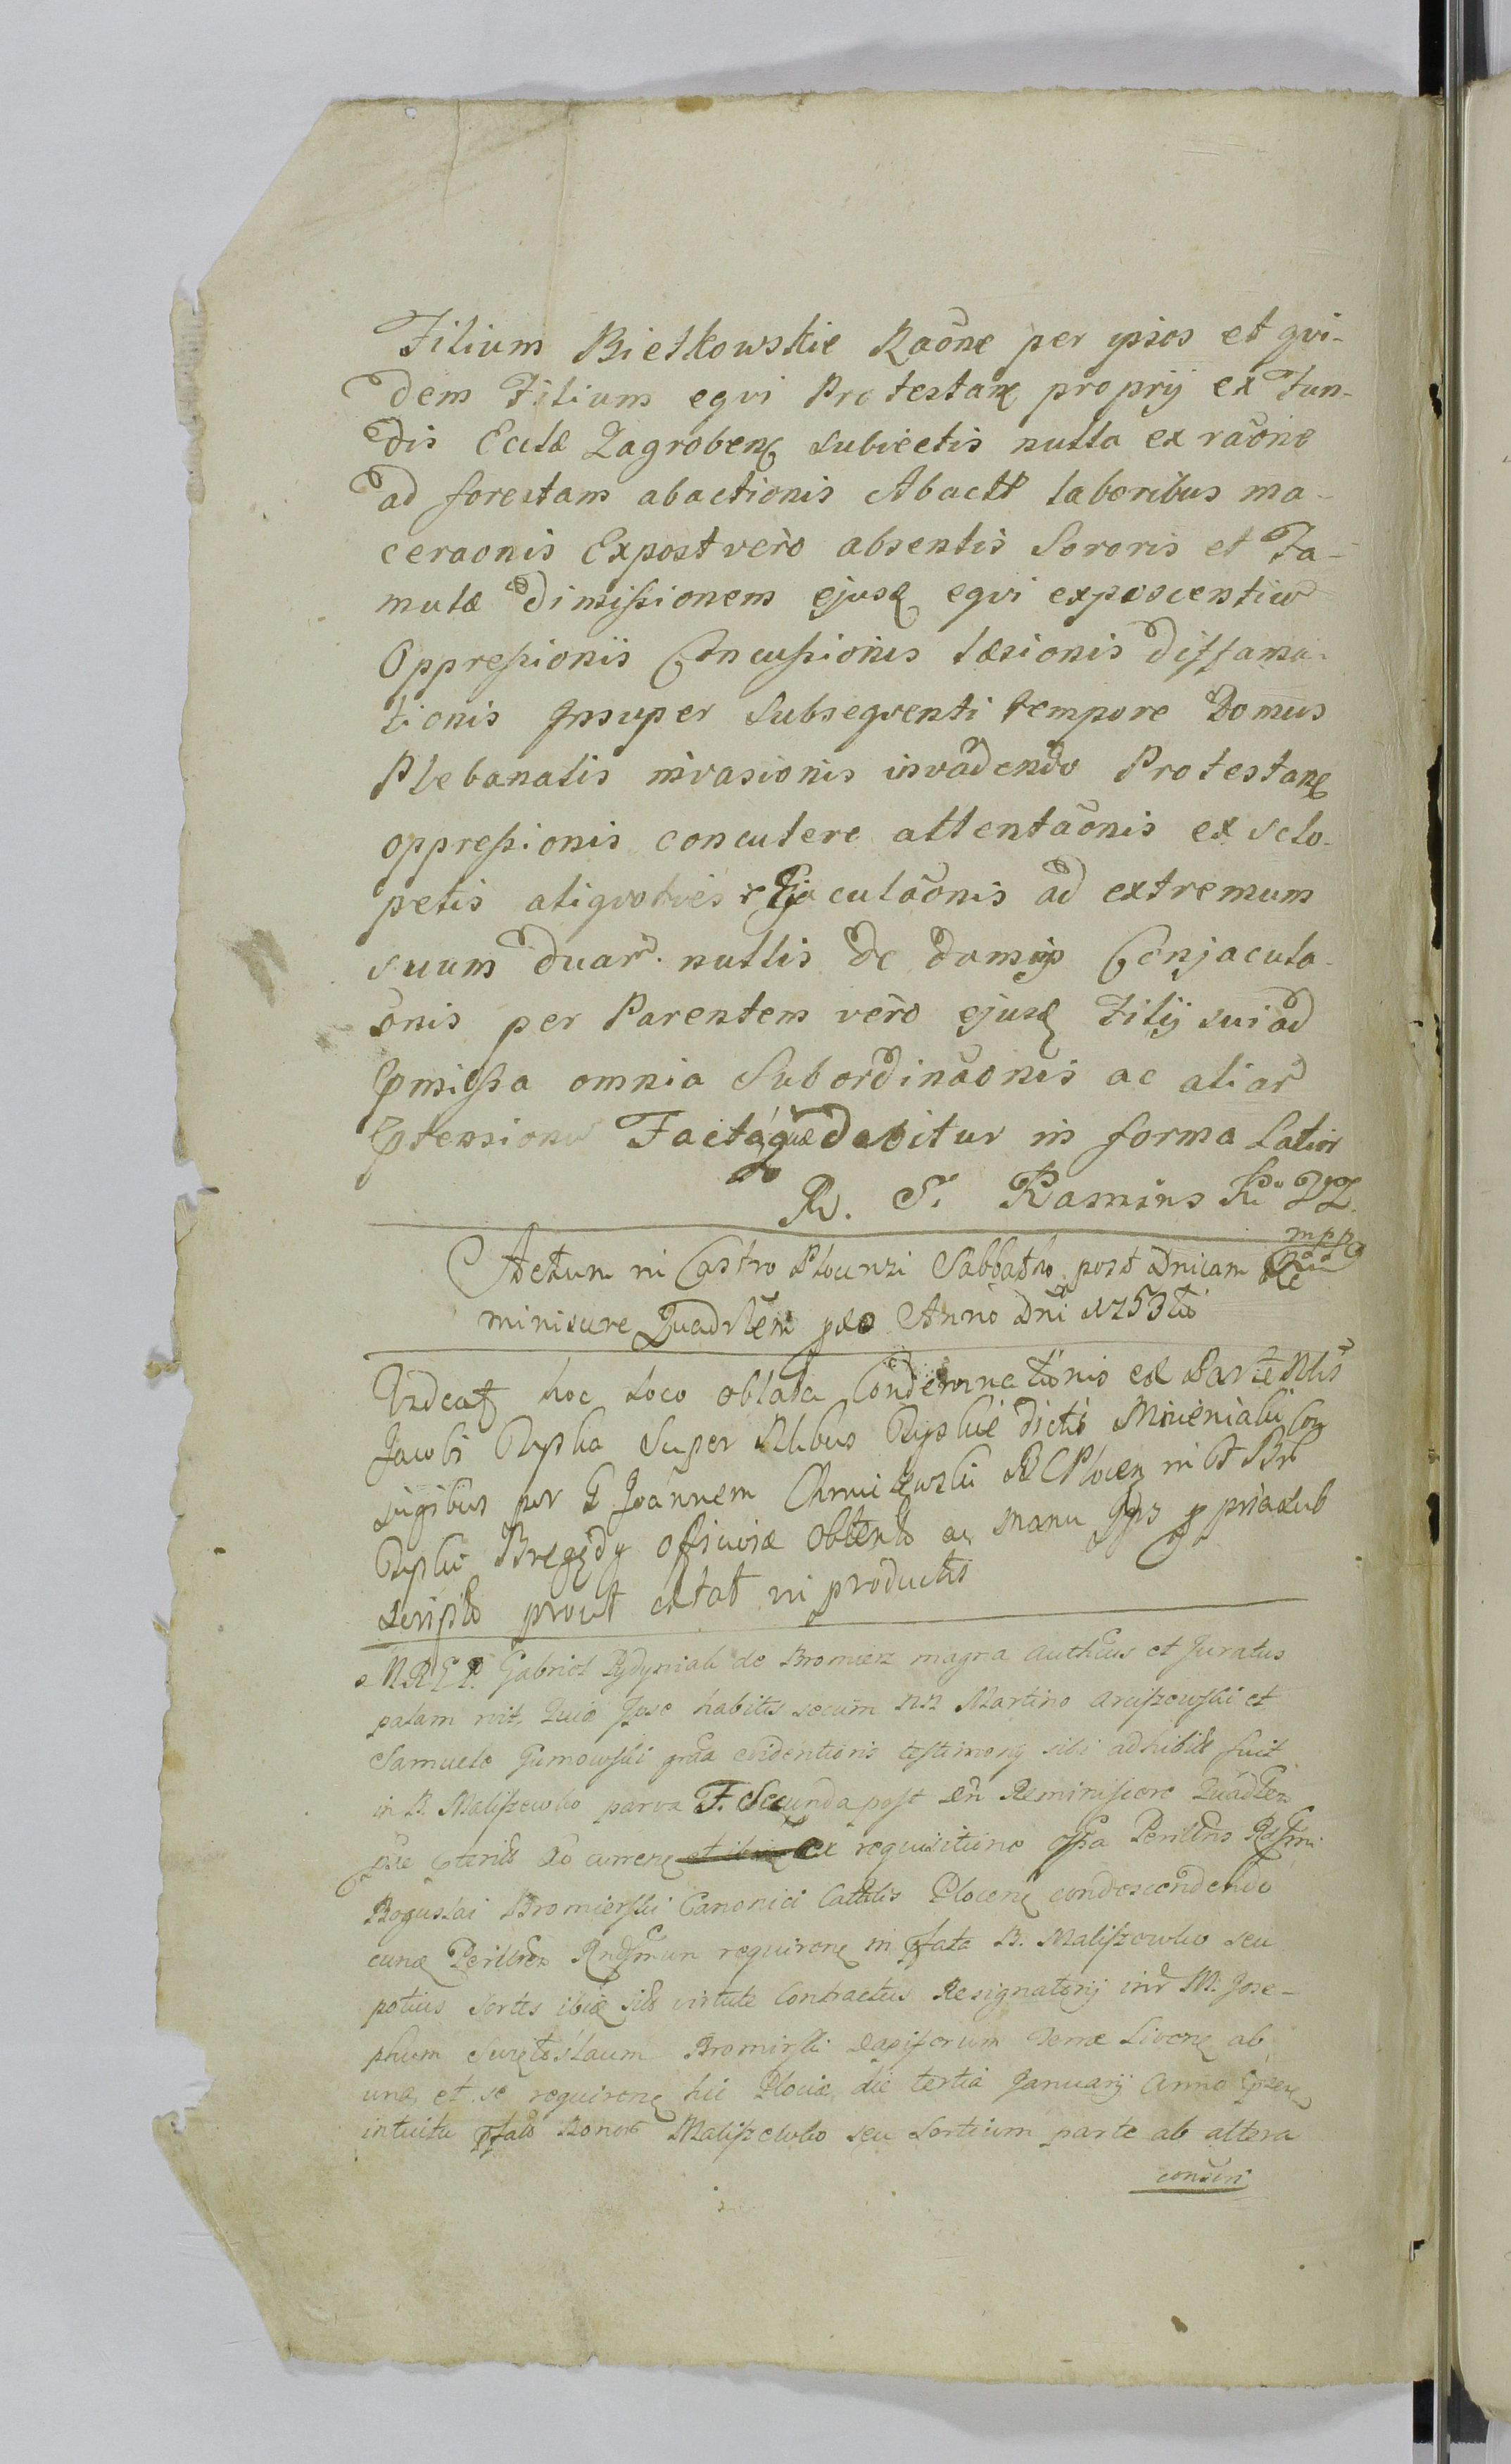 Filium Bietkowskie Raone per ipsos et qvi-
dem Filium eqvi Protestanę proprij ex Fun-
dis Eccla Zagrobenę subiectis nulla ex raone
ad forestam abactionis Abacti laboribus ma-
ceraonis Expost vero absentis Sororis et Fa-
mulæ dimissionem ejusq eqvi exposcentiu
Oppressionis Concussionis læsionis diffama-
tionis Insuper subseqventi tempore Domus
Plebanalis invasionis invadendo Protestanę
oppressionis concutere attentaonis ex sclo-
petis aliqvoties Ejaculaonis ad extremum
suum duar. nullis de damijs Conjacula-
onis per Parentem vero ejusq Filij sui ad
pmissa omnia Subordinaonis ac aliar
ptensionu Facta, quæ dabitur in forma Latior
R. S. Rasmins
mpp
Actum in Castro Plocensi Sabbatho post Dnicam Re
miniscere Quadrlem pxo Anno Dni 1753tio
hoc loco oblata Condemnationis ex Parte Nlis
Jacobi Rypka Super Nlibus Rypkie dictis Mnieniakii Con
jugibus per G Joannem Chmilewski Plocen in
Rypki Bregędy officiose obtento ac manu ejus ppria sub
scripto prout extat in productis
MRGP. Gabriel Dydyniak de Bromierz magna authcus et Juratus
palam rvit. Quia Ipse habitis secum NN Martino Arciszewski et
Samuele Gumowski graa evidentioris testimony sibi adhibit fuit
in B. Maliszewko parva F. Secunda post Dn Reminiscere Quadlem
currenę ex requisitione Perillris
Boguslai Bromierski Canonici Cathlis Plocenę condescendendo
requirenę in pfata B. Maliszewko seu
potius Sortes ibiq sito virtute Contractus Resignatorij intr M. Jose-
phum Swiętoslaum Bromirski Dapiferum Terræ Livenę ab
una, et se requirenę hic Plociæ die tertia January Anno
intuitu pfato Bonor Maliszewko seu Sortium parte ab altera